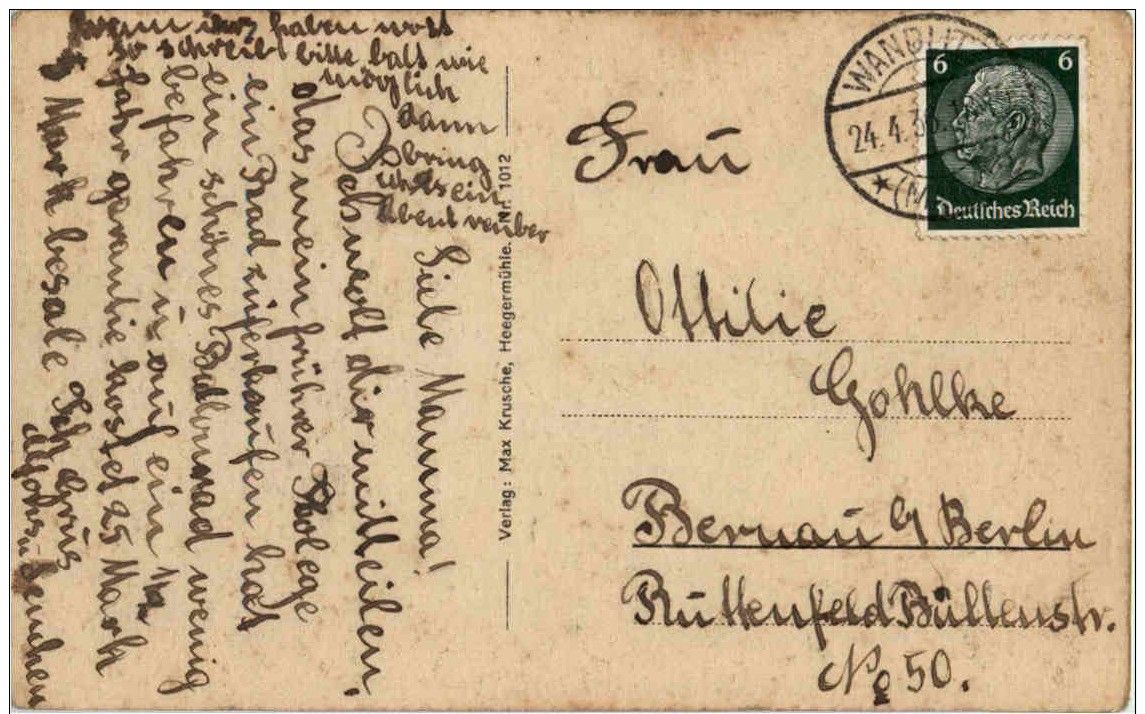 Liebe Mamma!
Ich wolt dir mitteilen.
das mein früher Kolege
ein Rad zuferkaufen hat
ein schönes Rad wenig
befahren u. auf ein 1/2
jahr garantie kostet 25 Mark
5 Mark besale Ich Grus
Alfons u.
wenn ihrs haben wolt
so schreib bitte balt wie
möglich
dann
bring
ein
Abent rüber
Verlag: Max Krusche, Heegermühle. Nr. 1012
WANDLITZ
24.4.36
*(M
6 6
Deutsches Reich
Frau
Ottilie
Gohlke
Bernau b/Berlin
Ruttenfeld Büllenstr.
No 50.